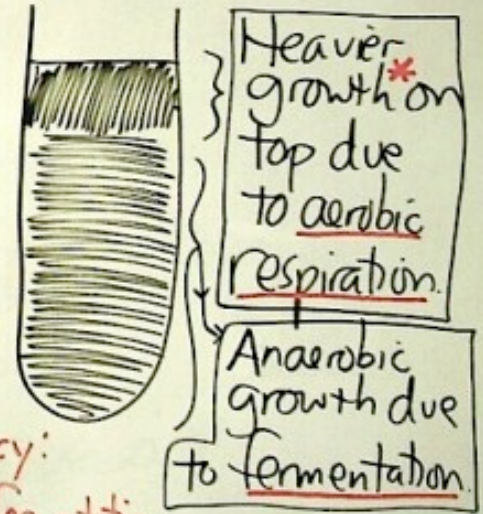 Heavier
growth* on
top due
to aerobic
respiration.
Anaerobic
growth due
to fermentation.